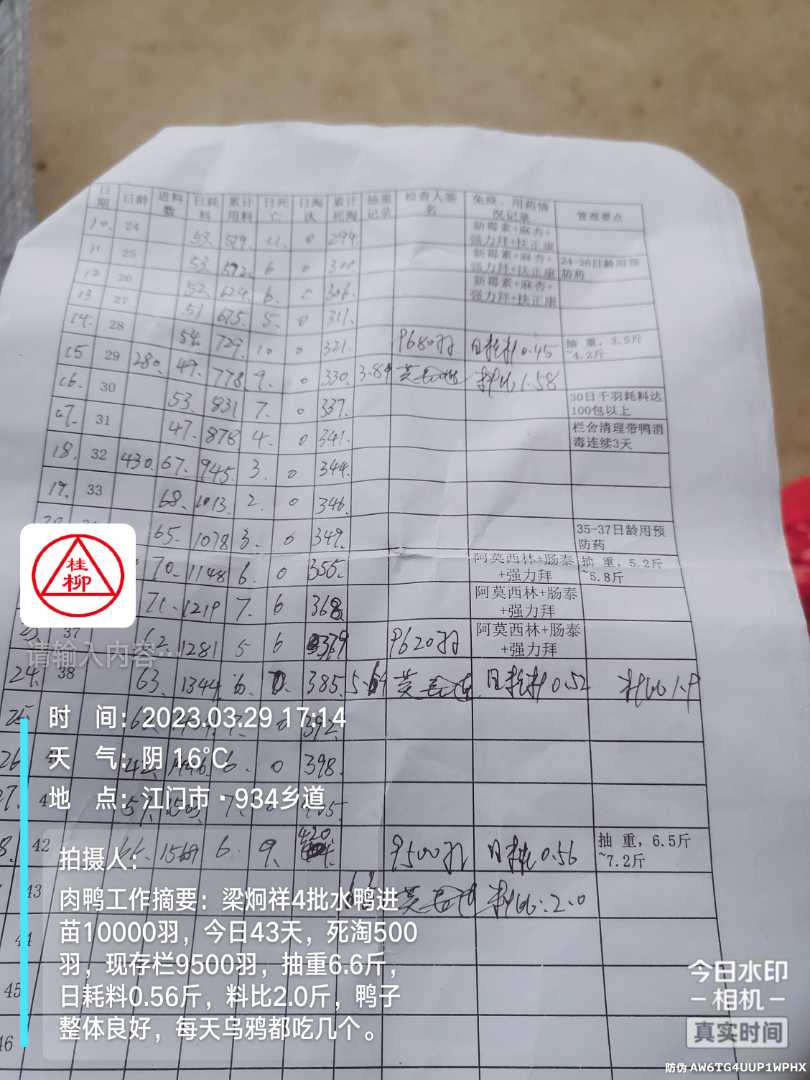 日期 日龄 进料数 日耗料 累计用料 日死亡 日淘汰 累计死淘 抽重记录 检查人签名 免疫、用药情况记录 管理要点
10. 24 53. 0 294. 新霉素+麻杏+强力拜+扶正康
11 25 53. 592. 6 0 新霉素+麻杏+强力拜+扶正康 24-26日龄用预防药
12 26 52. 6. 306. 新霉素+麻杏+强力拜+扶正康
13 27 51 5. 0 311.
14. 28 54. 729. 10 0 321. 9680羽 日耗料0.45 抽重,3.5斤~4.2斤
15 29 280. 49. 778. 9. 0 330. 料比1.58
16. 30 53. 831 7. 0 337. 30日千羽耗料达100包以上
17. 31 47. 878 4. 0 341. 栏舍清理带鸭消毒连续3天
18. 32 430. 67. 945. 3. 0 344.
19. 33 68. 1013. 2. 0 346.
65. 1078 3. 0 349. 35-37日龄用预防药
70. 1148 6. 0 355. 阿莫西林+肠泰+强力拜 抽重,5.2斤~5.8斤
71. 1219 7. 6 368 阿莫西林+肠泰+强力拜
37 62. 1281 5 6 9620羽 阿莫西林+肠泰+强力拜
24. 38 63. 1344 6. 385. 日耗料0.52 料比1.9
25 0 392.
26 6. 0 398.
42 9. 420. 9500羽 日耗0.56 抽重,6.5斤~7.2斤
43 料比:2.0
44
45
46
桂柳
请输入内容…
时 间:2023.03.29 17:14
天 气:阴 16℃
地 点:江门市·934乡道
拍摄人:
肉鸭工作摘要:梁炯祥4批水鸭进
苗10000羽,今日43天,死淘500
羽,现存栏9500羽,抽重6.6斤,
日耗料0.56斤,料比2.0斤,鸭子
整体良好,每天乌鸦都吃几个。
今日水印
-相机-
真实时间
防伪 AW6TG4UUP1WPHX